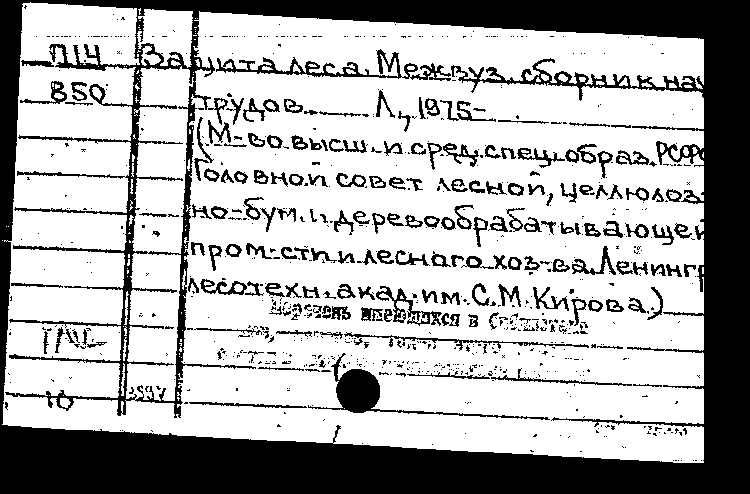 П14 Защита леса. Межвуз. сборник нау
850 трудов. Л., 1975-
(М-во высш. и сред. спец. образ. РСФС
Головной совет лесной, целлюлоз-
но-бум. и деревообрабатывающей
пром-сти и лесного хоз-ва. Ленингр
лесотехн. акад. им. С.М. Кирова.)
Перечень имеющихся в библиотеке
10